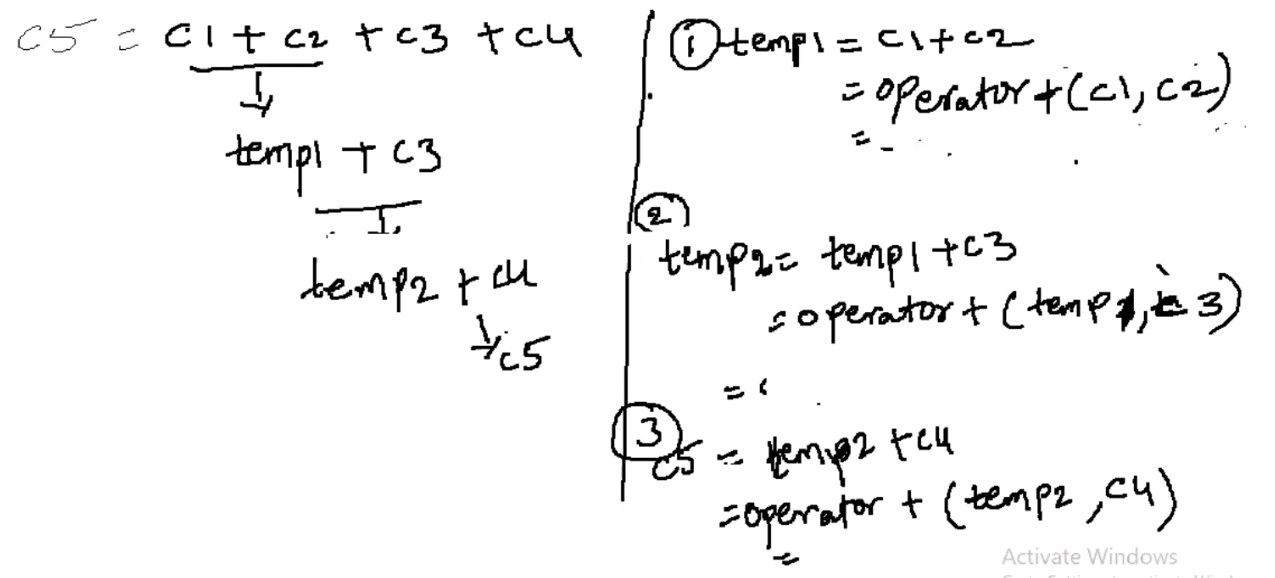 c5 = c1 + c2 + c3 + c4
temp1 + c3
temp2 + c4
c5
① temp1 = c1 + c2
= operator + (c1, c2)
=
②
temp2 = temp1 + c3
= operator + (temp1, c3)
=
③
c5 = temp2 + c4
= operator + (temp2, c4)
=
Activate Windows